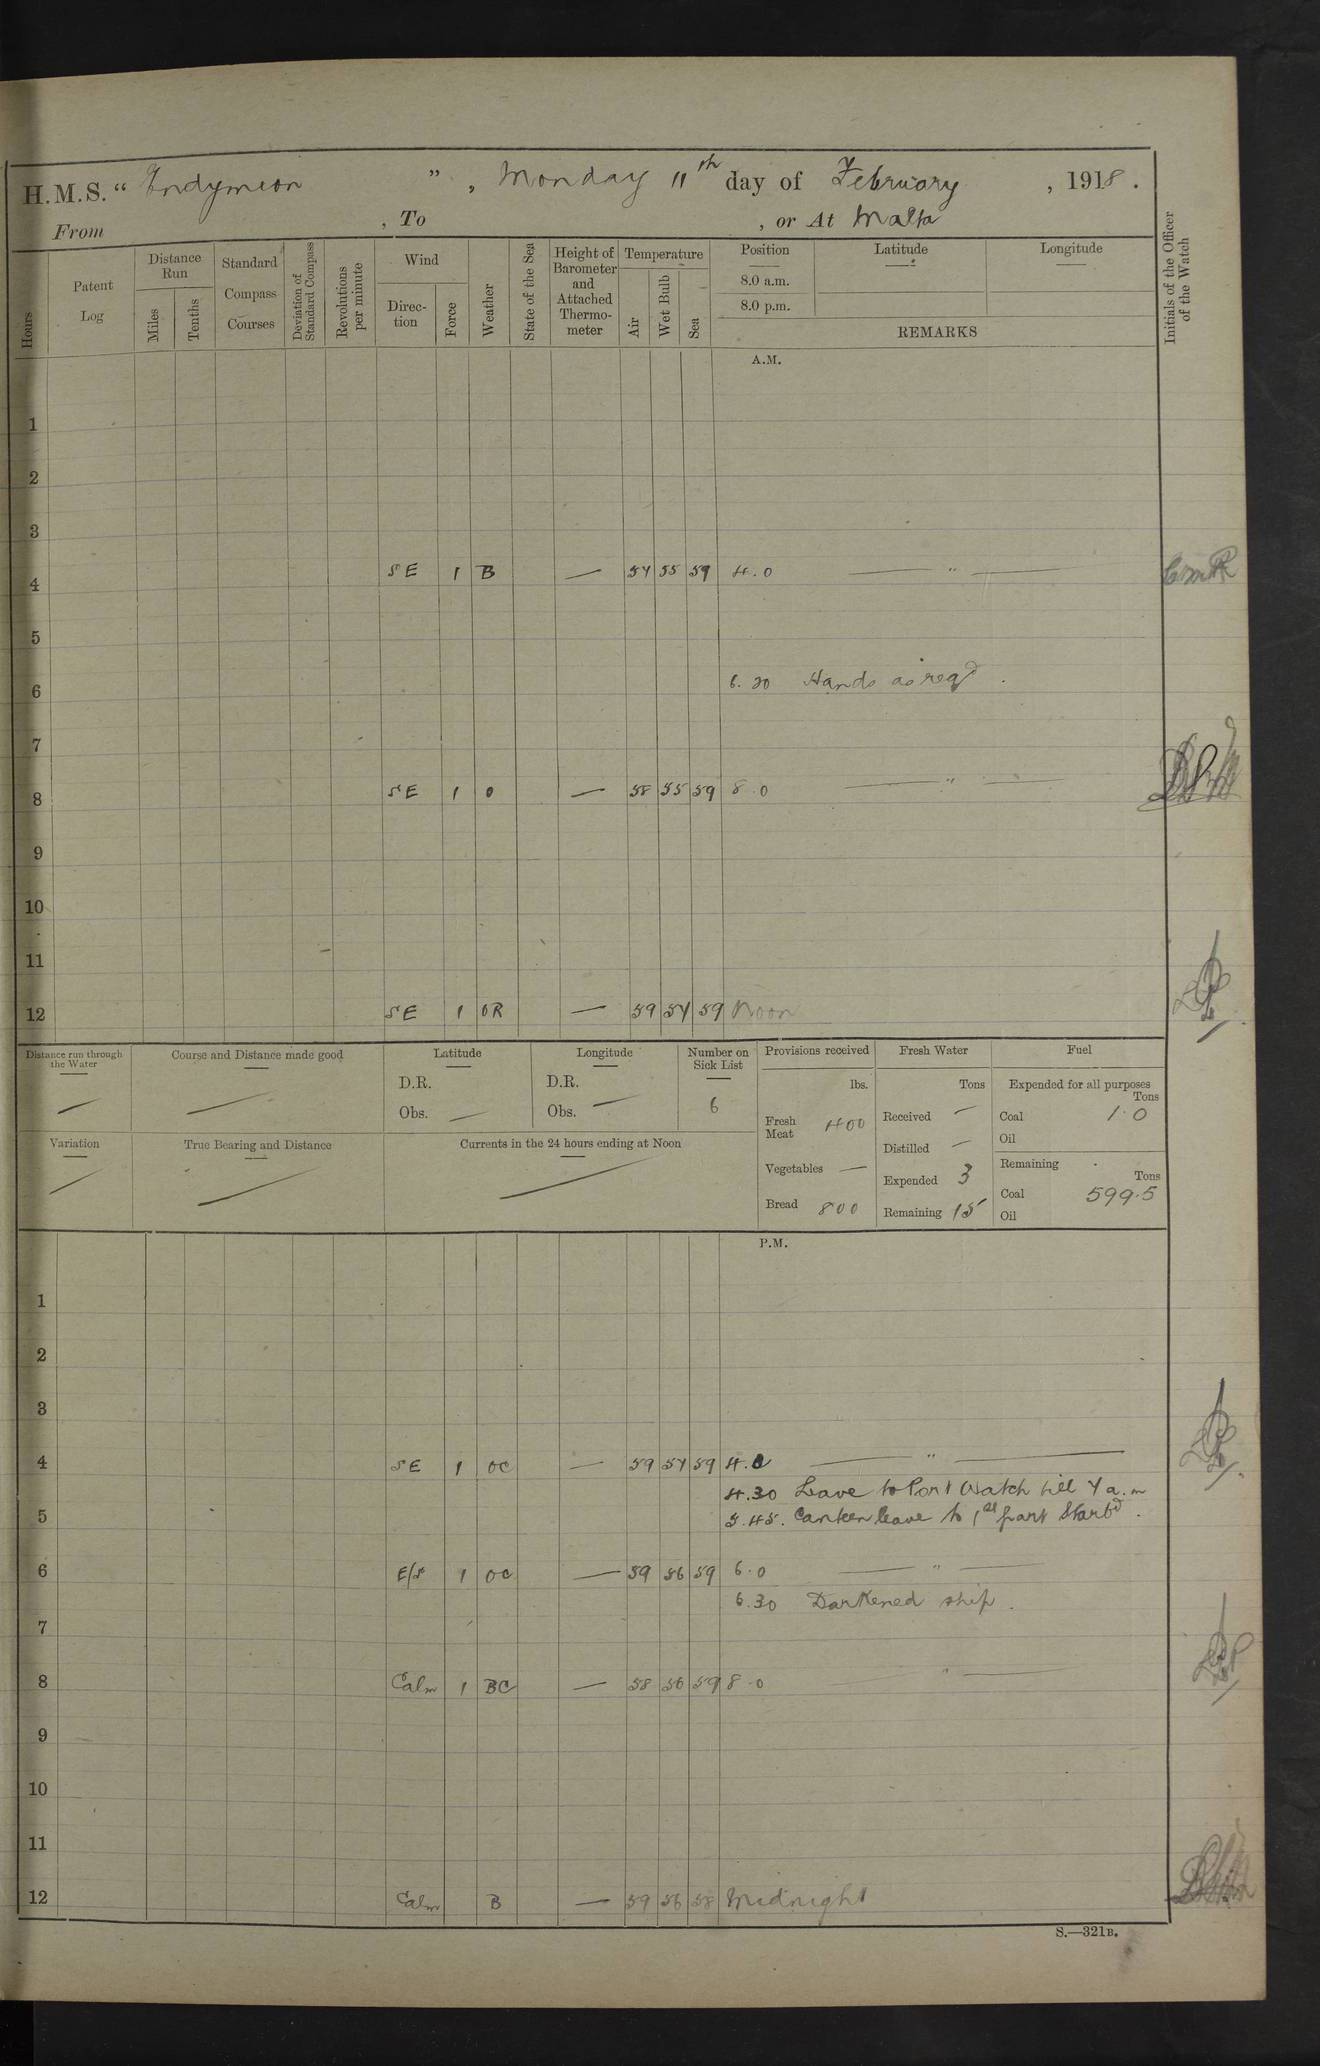 H.M.S. “ Endymion ” , Monday 11th day of February , 1918 .
From , To , or At Malta
Hours
Patent Log
Distance Run
Miles
Tenths
Standard Compass Courses
Deviation of Standard Compass
Revolutions per minute
Wind
Direction
Force
Weather
State of the Sea
Height of Barometer and Attached Thermometer
Temperature
Air
Wet Bulb
Sea
Position
8.0 a.m.
8.0 p.m.
Latitude
Longitude
REMARKS
Initials of the Officer of the Watch
A.M.
1
2
3
4 SE 1 B — 54 55 59 4.0 — " —
5
6 6.30 Hands as reqd.
7
8 SE 1 O — 58 55 59 8.0 — " —
9
10
11
12 SE 1 OR — 59 54 59 Noon
Distance run through the Water —
Course and Distance made good —
Latitude
D.R.
Obs. —
Longitude
D.R.
Obs. —
Number on Sick List
6
Provisions received
lbs.
Fresh Meat 400
Vegetables —
Bread 800
Fresh Water
Tons
Received —
Distilled —
Expended 3
Remaining 15
Fuel
Expended for all purposes
Tons
Coal 1.0
Oil
Remaining
Tons
Coal 599.5
Oil
Variation —
True Bearing and Distance —
Currents in the 24 hours ending at Noon —
P.M.
1
2
3
4 SE 1 OC — 59 54 59 4.0 — " —
4.30 Leave to Port Watch till 7 a.m
5 5.45. Canteen leave to 1st part Starbd.
6 E/S 1 OC — 59 56 59 6.0 — " —
6.30 Darkened ship.
7
8 Calm 1 BC — 58 56 59 8.0 " —
9
10
11
12 Calm B — 59 56 58 Midnight
S.—321B.